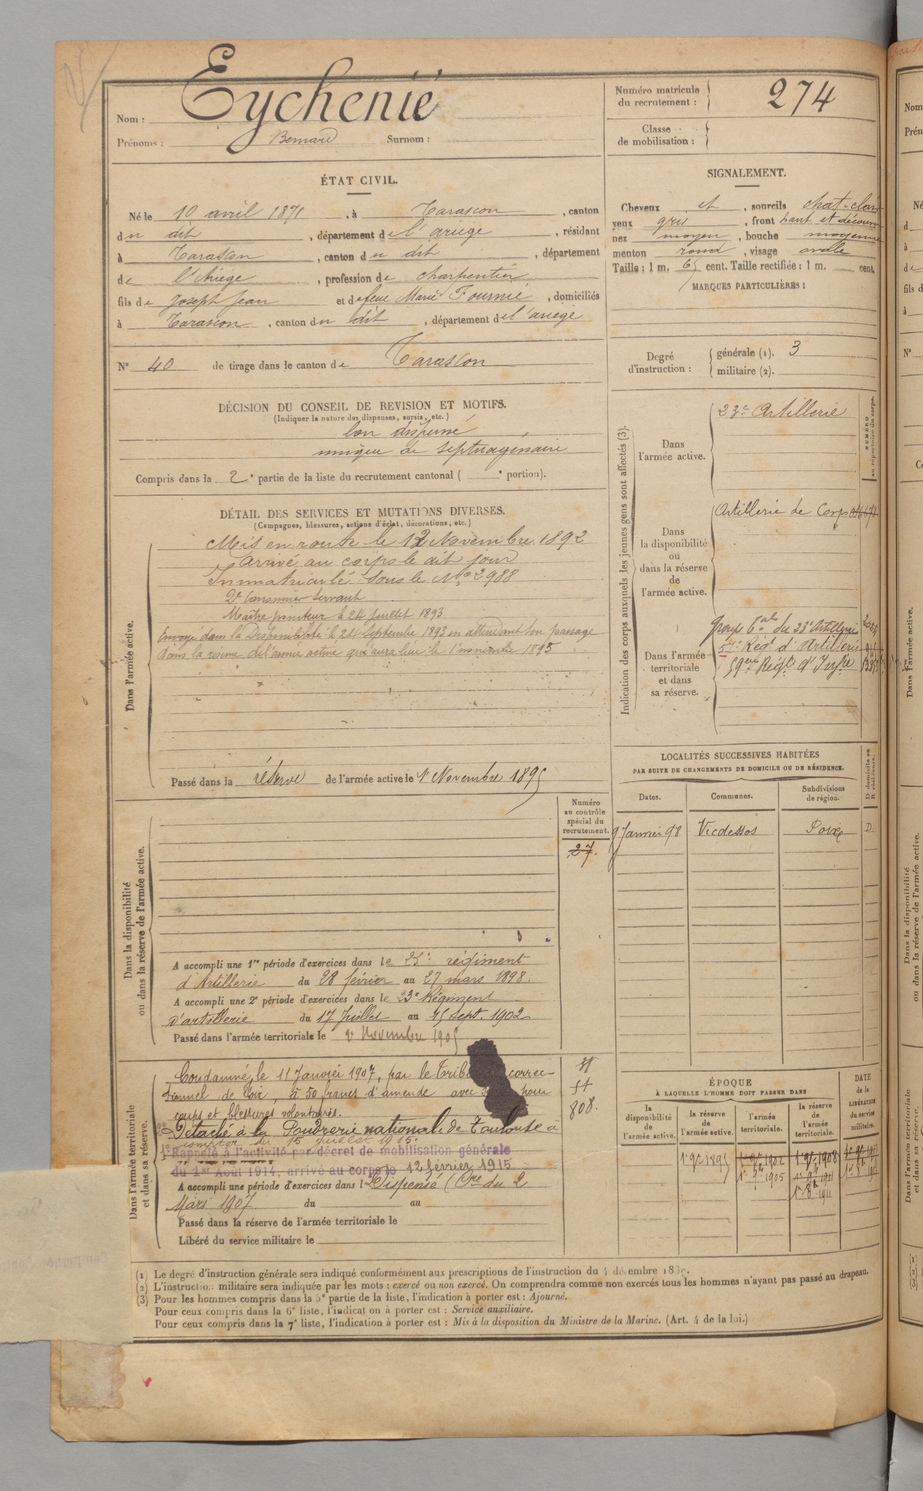 Nom : Eychenié
Prénoms : Bernard Surnom :
Numéro matricule du recrutement : 274
Classe de mobilisation :
ÉTAT CIVIL.
Né le 10 avril 1871, à Tarascon, canton
du dit, département de l'ariège, résidant
à Tarascon, canton du dit, département
de l'Ariège, profession de charpentier
fils de Joseph Jean et de feue Marie Fournié, domiciliés
à Tarascon, canton du dit, département de l'ariège
N° 40 de tirage dans le canton de Tarascon
DÉCISION DU CONSEIL DE REVISION ET MOTIFS.
(Indiquer la nature des dispenses, sursis, etc.)
bon dispensé
unique de septuagénaire
Compris dans la 2e partie de la liste du recrutement cantonal ( e portion).
DÉTAIL DES SERVICES ET MUTATIONS DIVERSES.
(Campagnes, blessures, actions d'éclat, décorations, etc.)
Dans l'armée active.
Mis en route le 12 Novembre 1892
Arrivé au corps le dit jour
Immatriculé sous le No 2988
2e Canonnier Servant
Maître pointeur le 24 Juillet 1893
Envoyé dans la Disponibilité le 24 Septembre 1893 en attendant son passage
dans la réserve de l'armée active qui aura lieu le 1er novembre 1895
Passé dans la réserve de l'armée active le 1er Novembre 1895
Dans la disponibilité ou dans la réserve de l'armée active.
Numéro au contrôle spécial du recrutement.
27.
A accompli une 1re période d'exercices dans le 23e régiment
d'Artillerie du 28 février au 27 mars 1898.
A accompli une 2e période d'exercices dans le 23e Régiment
d'artillerie du 17 Juillet au Sept. 1902
Passé dans l'armée territoriale le Novembre 1905
Dans l'armée territoriale et dans sa réserve.
Condamné, le 11 Janvier 1907, par le Tribunal correc-
tionnel de Foix, à 50 francs d'amende avec pour
coups et blessures volontaires.
Détaché à la Poudrerie nationale de Toulouse à
compter du 15 Juillet 1915.
1° Rappelé à l'activité par décret de mobilisation générale
du 1er Août 1914, arrivé au corps le 12 février 1915
808.
A accompli une période d'exercices dans l Dispensé (Cre du 2
Mars 1907 du au
Passé dans la réserve de l'armée territoriale le
Libéré du service militaire le
SIGNALEMENT.
Cheveux et, sourcils chat-clair
yeux gris, front haut et découvert
nez moyen, bouche moyenne
menton rond, visage ovale
Taille : 1 m. 65 cent. Taille rectifiée : 1 m. cent.
MARQUES PARTICULIÈRES :
Degré d'instruction : générale (1). 3
militaire (2).
Indication des corps auxquels les jeunes gens sont affectés (3).
Dans l'armée active.
23e Artillerie
Dans la disponibilité ou dans la réserve de l'armée active.
Artillerie de Corps
Dans l'armée territoriale et dans sa réserve.
Groupe du 23e Artillerie
Régt d'Artillerie
Régt d'Inf.rie
LOCALITÉS SUCCESSIVES HABITÉES
PAR SUITE DE CHANGEMENTS DE DOMICILE OU DE RÉSIDENCE.
Dates. Communes. Subdivisions de région. D domicile ou R résidence.
9 Janvier 98 Vicdessos Foix D.
ÉPOQUE
À LAQUELLE L'HOMME DOIT PASSER DANS
DATE de la LIBÉRATION du service militaire.
la disponibilité de l'armée active. la réserve de l'armée active. l'armée territoriale. la réserve de l'armée territoriale.
1er 9bre 1895 1er 9bre 1902 1er 9bre 1908
1er 9bre 1905
(1) Le degré d'instruction générale sera indiqué conformément aux prescriptions de l'instruction du 4 décembre
(2) L'instruction militaire sera indiquée par les mots : exercé ou non exercé. On comprendra comme non exercés tous les hommes n'ayant pas passé au drapeau.
(3) Pour les hommes compris dans la 5e partie de la liste, l'indication à porter est : Ajourné.
Pour ceux compris dans la 6e liste, l'indication à porter est : Service auxiliaire.
Pour ceux compris dans la 7e liste, l'indication à porter est : Mis à la disposition du Ministre de la Marine. (Art. 4 de la loi.)